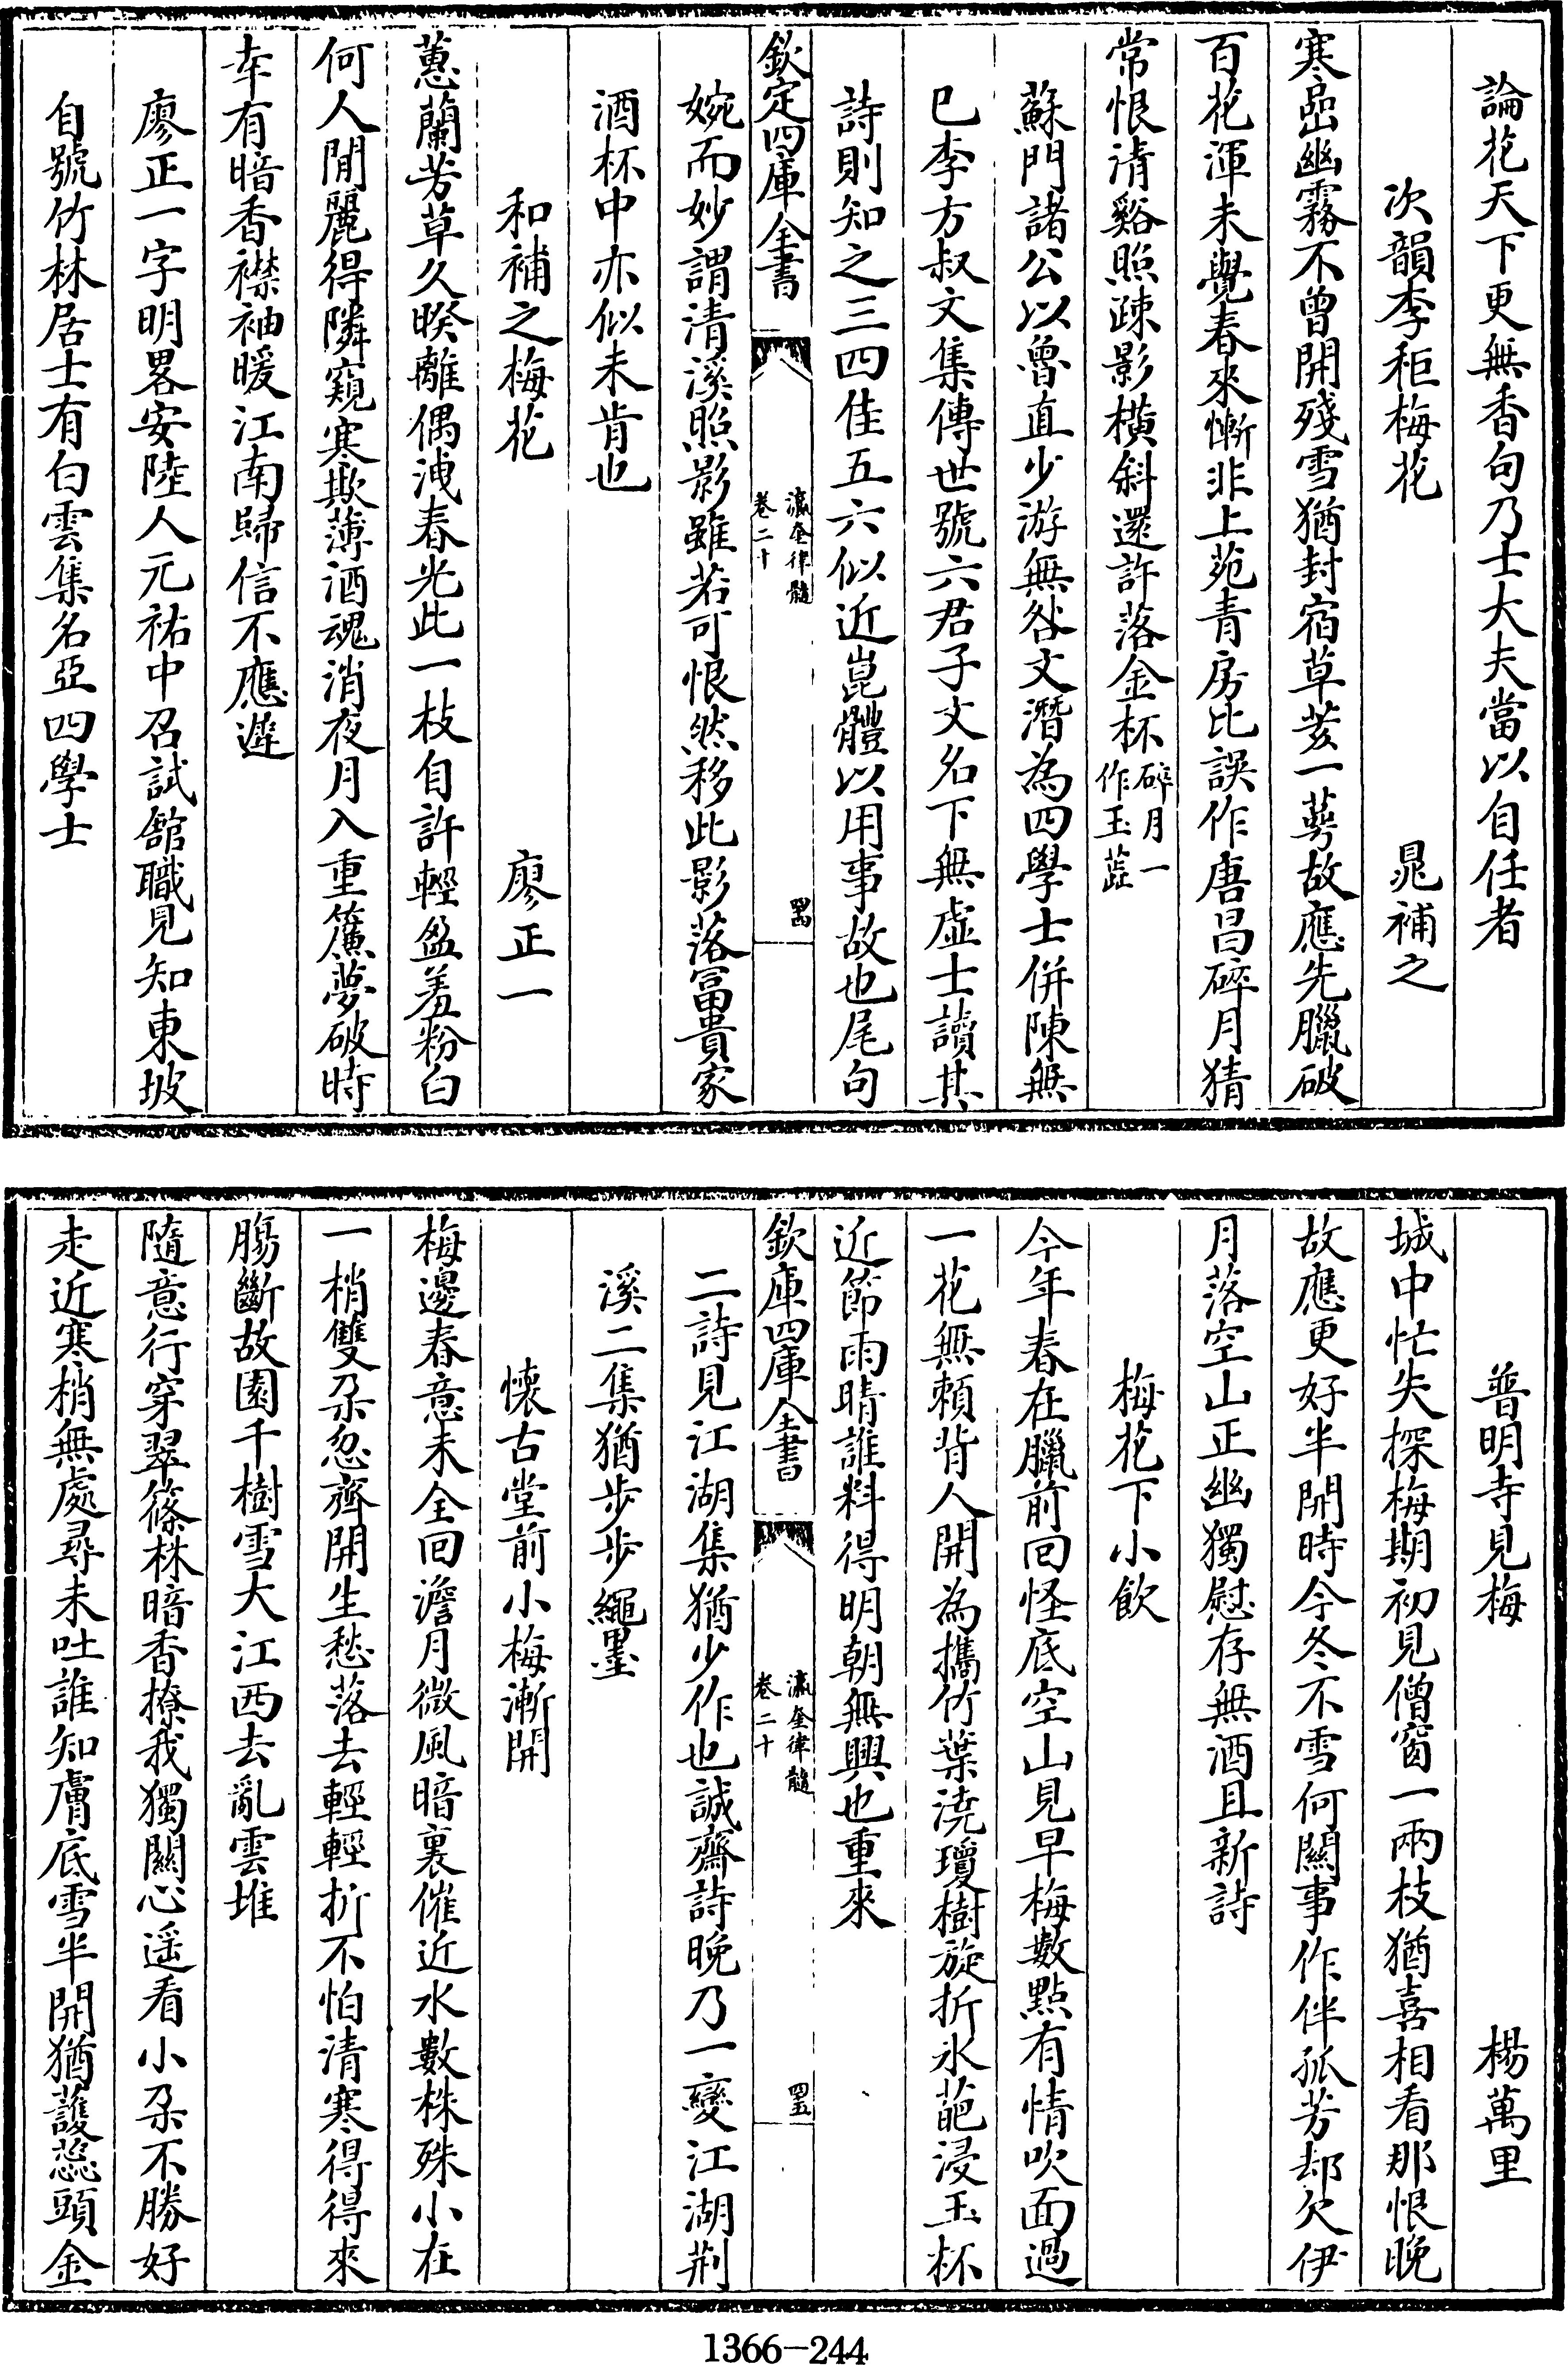 論花天下更無香句乃士大夫當以自任者
次韻李秬梅花 晁補之
寒嵓幽霧不曾開殘雪猶封宿草荄一萼故應先臘破
百花渾未覺春來慚非上苑青房比誤作唐昌碎月猜
常恨清谿照疎影橫斜還許落金杯碎月一作玉蕋
蘇門諸公以魯直少游無咎文潛為四學士併陳無
已李方叔文集傳世號六君子文名下無虛士讀其
詩則知之三四佳五六似近崑體以用事故也尾句
欽定四庫全書 瀛奎律髓 卷二十 四四
婉而妙謂清溪照影雖若可恨然移此影落富貴家
酒杯中亦似未肯也
和補之梅花 廖正一
蕙蘭芳草久暌離偶洩春光此一枝自許輕盈羞粉白
何人閒麗得隣窺寒欺薄酒魂消夜月入重簾夢破時
幸有暗香襟袖暖江南歸信不應遲
廖正一字明畧安陸人元祐中召試舘職見知東坡
自號竹林居士有白雲集名亞四學士
普明寺見梅 楊萬里
城中忙失探梅期初見僧窗一兩枝猶喜相看那恨晚
故應更好半開時今冬不雪何關事作伴孤芳却欠伊
月落空山正幽獨慰存無酒且新詩
梅花下小飲
今年春在臘前回怪底空山見早梅數點有情吹面過
一花無賴背人開為攜竹葉澆瓊樹旋折氷葩浸玉杯
近節雨晴誰料得明朝無興也重來
欽庫四庫全書 瀛奎律髓 卷二十 四五
二詩見江湖集猶少作也誠齋詩晚乃一變江湖荆
溪二集猶步步繩墨
懷古堂前小梅漸開
梅邊春意未全回澹月微風暗裏催近水數株殊小在
一梢雙朶忽齊開生愁落去輕輕折不怕清寒得得來
腸斷故園千樹雪大江西去亂雲堆
隨意行穿翠篠林暗香撩我獨關心遥看小朶不勝好
走近寒梢無處尋未吐誰知膚底雪半開猶護蕊頭金
1366-244